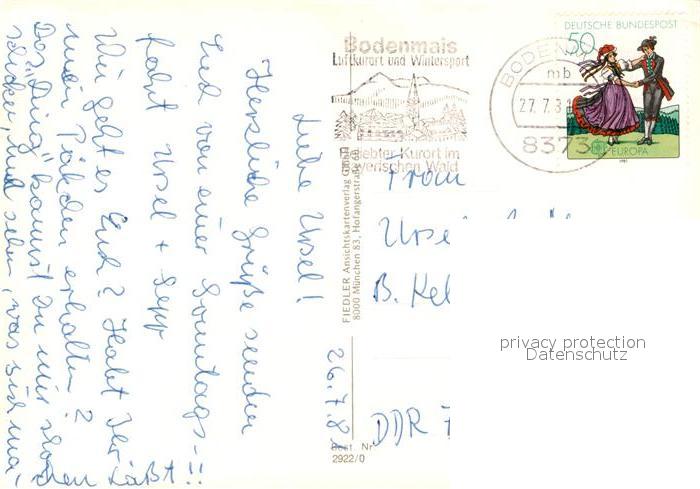 Bodenmais
Luftkurort und Wintersport
Beliebter Kurort im
Bayerischen Wald
DEUTSCHE BUNDESPOST
50
EUROPA
1981
BODENMAIS
mb
27.7.8
8373
26.7.8
Liebe Ursel!
Herzliche Grüße senden
Euch von einer Sonntags-
fahrt Ursel + Sepp
Wie geht es Euch? Habt Ihr
mein Päkchen erhalten?
Das "Ding" kannst Du mir
schicken, mal sehn, was sich ma-
chen läßt!!
FIEDLER Ansichtskartenverlag GmbH
8000 München 83, Hofangerstraße
Best. Nr.
2922/0
Frau
Urse
B. Kel
DDR 7
privacy protection
Datenschutz